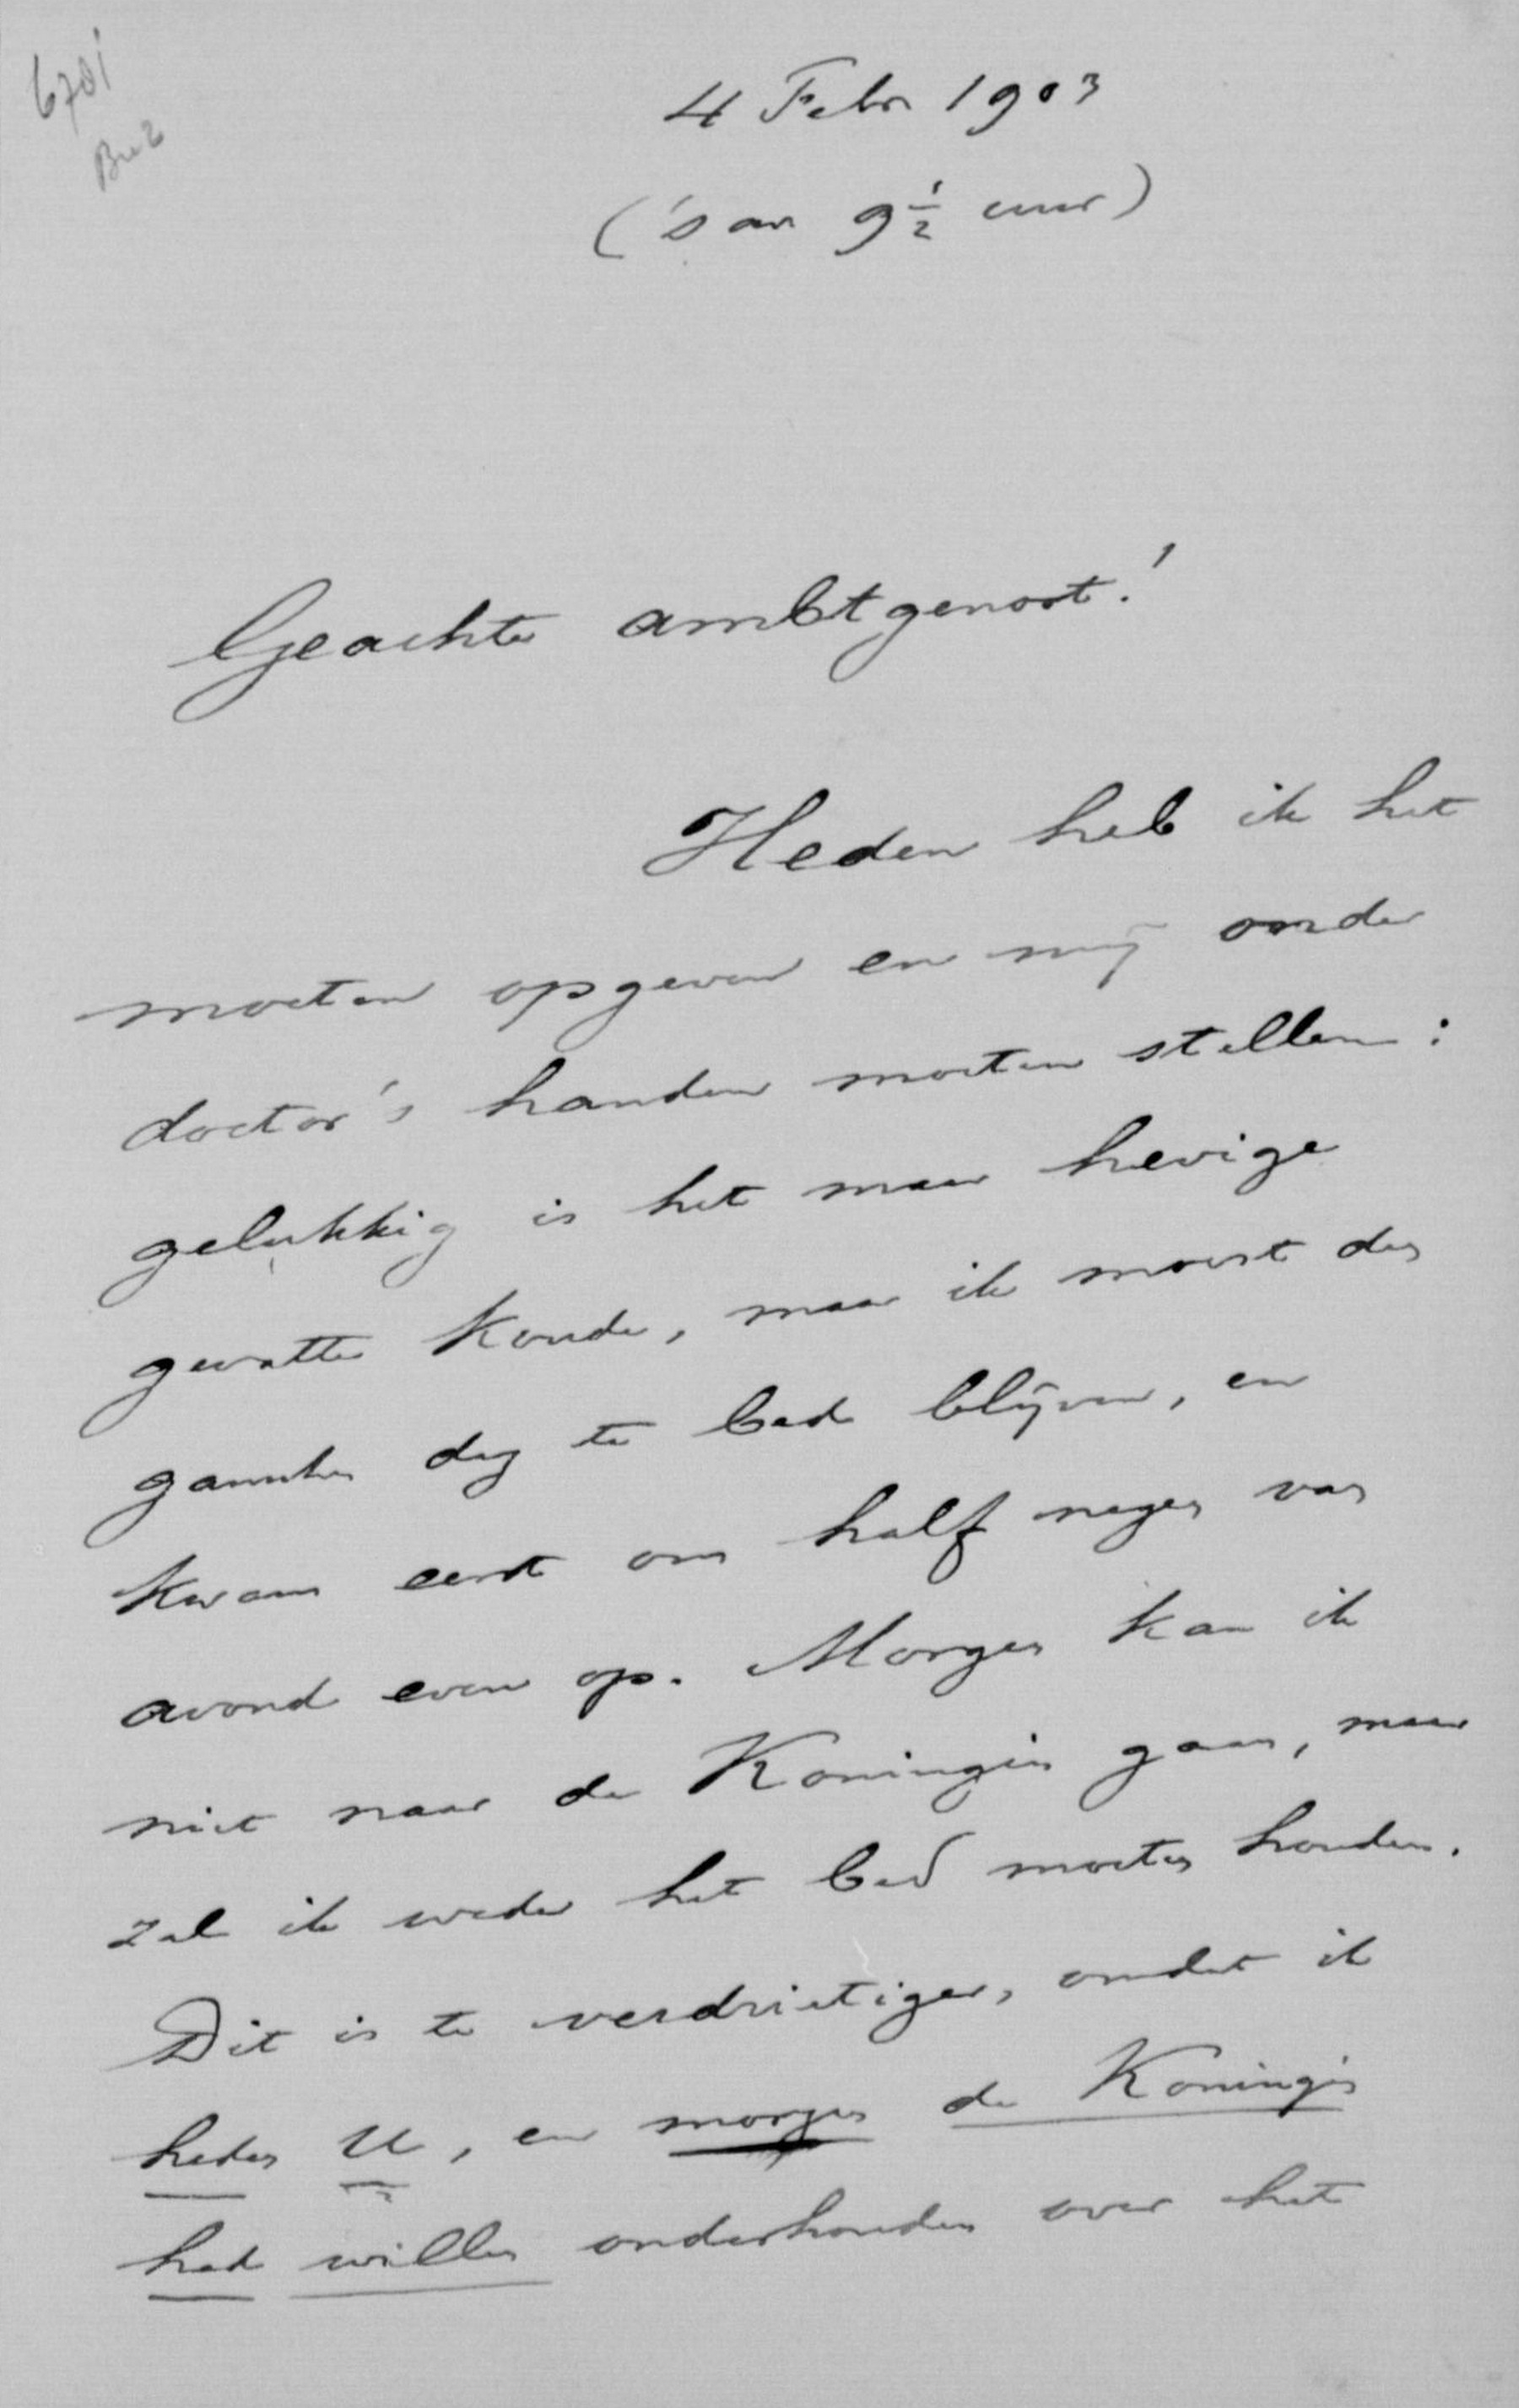 6701
BuZ
4 Febr 1903
('s av 9 1/2 uur)
Geachte ambtgenoot!
Heden heb ik het
moeten opgeven en mij onder
doctor's handen moeten stellen:
gelukkig is het maar hevige
gevatte koude, maar ik moest den
ganschen dag te bed blijven, en
kwam eerst om half negen van
avond even op. Morgen kan ik
niet naar de Koningin gaan, maar
zal ik weder het bed moeten houden.
Dit is te verdrietiger, omdat ik
heden U, en morgen de Koningin
had willen onderhouden over het